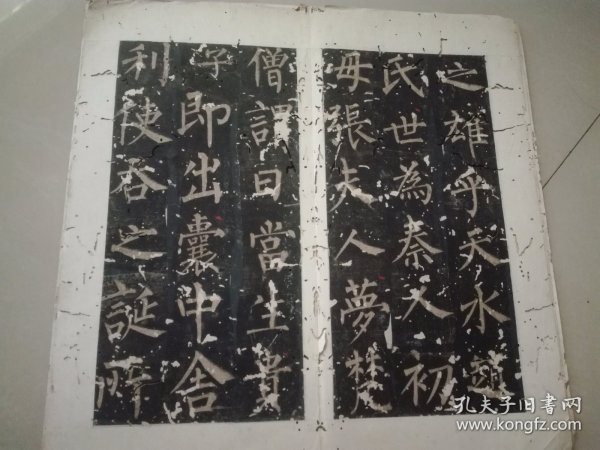 之雄乎天水趙
氏世為秦人初
母張夫人夢梵
僧謂曰當生貴
子即出囊中舍
利使吞之誕所
孔夫子旧书网
www.kongfz.com